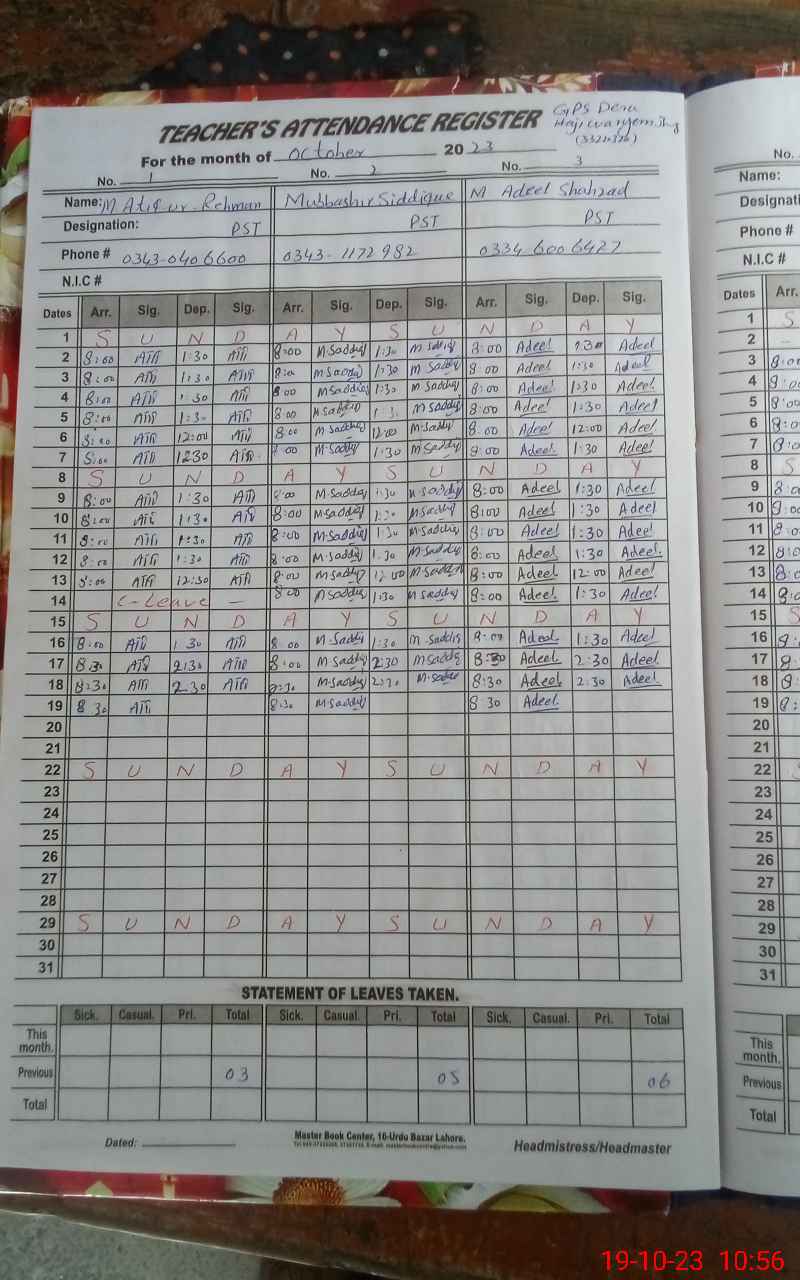 TEACHER'S ATTENDANCE REGISTER
GPS Dera
(33210326)
For the month of October 2023
No. 1 No. 2 No. 3
Name: M Atiq ur Rehman Mubbashir Siddique M Adeel Shahzad
Designation: PST PST PST
Phone # 0343-0406600 0343-1172982 0334 6006427
N.I.C #
Dates Arr. Sig. Dep. Sig. Arr. Sig. Dep. Sig. Arr. Sig. Dep. Sig.
1 S U N D A Y S U N D A Y
2 8:00 1:30 8:00 M.Saddiq 1:30 M Saddiq 8:00 Adeel 1:30 Adeel
3 8:00 1:30 8:00 M Saddiq 1:30 M Saddiq 8:00 Adeel 1:30 Adeel
4 8:00 1:30 8:00 M Saddiq 1:30 M Saddiq 8:00 Adeel 1:30 Adeel
5 8:00 1:30 8:00 M Saddiq M Saddiq 8:00 Adeel 1:30 Adeel
6 8:00 12:00 8:00 M.Saddiq 12:00 M.Saddiq 8:00 Adeel 12:00 Adeel
7 8:00 1230 M.Saddiq 1:30 M Saddiq 8:00 Adeel 1:30 Adeel
8 S U N D A Y S U N D A Y
9 8:00 1:30 8:00 M.Saddiq 1:30 M Saddiq 8:00 Adeel 1:30 Adeel
10 8:00 1:30 8:00 M.Saddiq 1:30 M Saddiq 8:00 Adeel 1:30 Adeel
11 8:00 1:30 8:00 M.Saddiq 1:30 M.Saddiq 8:00 Adeel 1:30 Adeel
12 8:00 1:30 8:00 M.Saddiq 1:30 M Saddiq 8:00 Adeel 1:30 Adeel.
13 8:00 12:30 8:00 M Saddiq 12:00 M Saddiq 8:00 Adeel 12:00 Adeel
14 C-Leave — 8:00 M Saddiq 1:30 M Saddiq 8:00 Adeel 1:30 Adeel
15 S U N D A Y S U N D A Y
16 8:00 1:30 8:00 M.Saddiq 1:30 M.Saddiq 8:00 Adeel 1:30 Adeel
17 8:30 2:30 8:00 M Saddiq 2:30 M Saddiq 8:30 Adeel 2:30 Adeel
18 8:30 2:30 8:30 M Saddiq 2:30 M.Saddiq 8:30 Adeel 2:30 Adeel
19 8:30 8:30 M.Saddiq 8 30 Adeel
20
21
22 S U N D A Y S U N D A Y
23
24
25
26
27
28
29 S U N D A Y S U N D A Y
30
31
STATEMENT OF LEAVES TAKEN.
Sick. Casual. Pri. Total Sick. Casual. Pri. Total Sick. Casual. Pri. Total
This month.
Previous 03 05 06
Total
Dated:
Master Book Center, 16-Urdu Bazar Lahore.
Headmistress/Headmaster
No.
Name:
Designati
Phone #
N.I.C #
Dates Arr.
1 S
2 -
3 8:00
4 8:00
5 8:00
6 8:0
7 8:0
8 S
9 8:0
10 9:00
11 8:0
12 8:0
13 8:0
14 8:0
15 S
16 8:
17 8:
18 8:
19 8:
20
21
22 S
23
24
25
26
27
28
29
30
31
This month.
Previous
Total
19-10-23 10:56